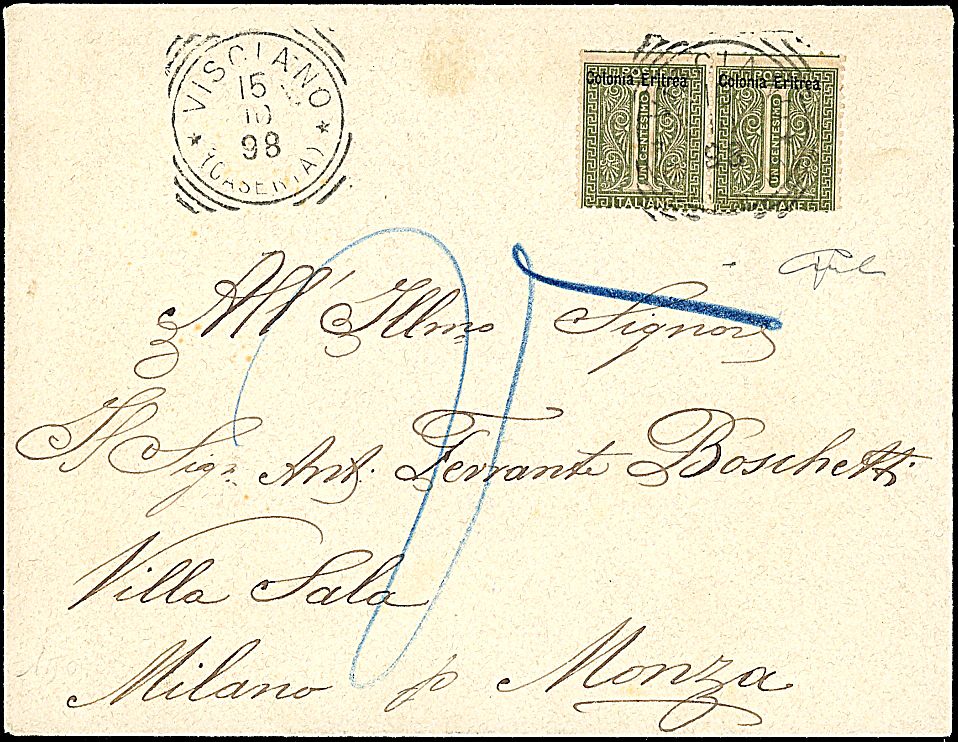 VISCIANO
15
10
98
(CASERTA)
Colonia Eritrea Colonia Eritrea
UN CENTESIMO UN CENTESIMO
1 1
ITALIANE ITALIANE
All' Illmo Signor
Il Sigr. Ant. Ferrante Boschetti
Villa Sala
Milano p Monza